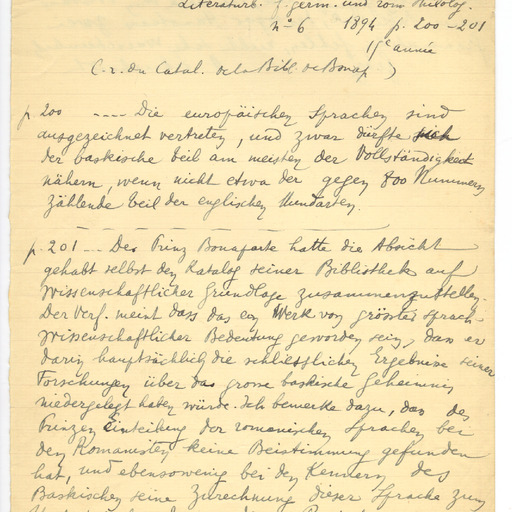 Literaturb. f. germ. und rom. Philolog.
nº 6 1894 p. 200-201
15e année
(C.r. du Catal. de la Bibl. de Bonap.)
p. 200 ---- Die europäischen Sprachen sind
ausgezeichnet vertreten, und zwar dürfte sich
der baskische Teil am meisten der Vollständigkeit
nähern, wenn nicht etwa der gegen 800 Nummern
zählende Teil der englischen Mundarten.
p. 201 -- Der Prinz Bonaparte hatte die Absicht
gehabt selbst den Katalog seiner Bibliothek auf
wissenschaftlicher Grundlage zusammenzustellen.
Der Verf. meint dass das ein Werk von grösster sprach-
wissenschaftlicher Bedeutung geworden sein, dass er
darin hauptsächlich die schliesslichen Ergebnise seiner
Forschungen über das grosse baskische Geheimnis
niedergelegt haben würde. Ich bemerke dazu, das des
Prinzen Einteilung der romanischen Sprachen bei
den Romanisten keine Beistimmung gefunden
hat, und ebensowenig bei den Kennern des
Baskischen seine Zurechnung dieser Sprache zum